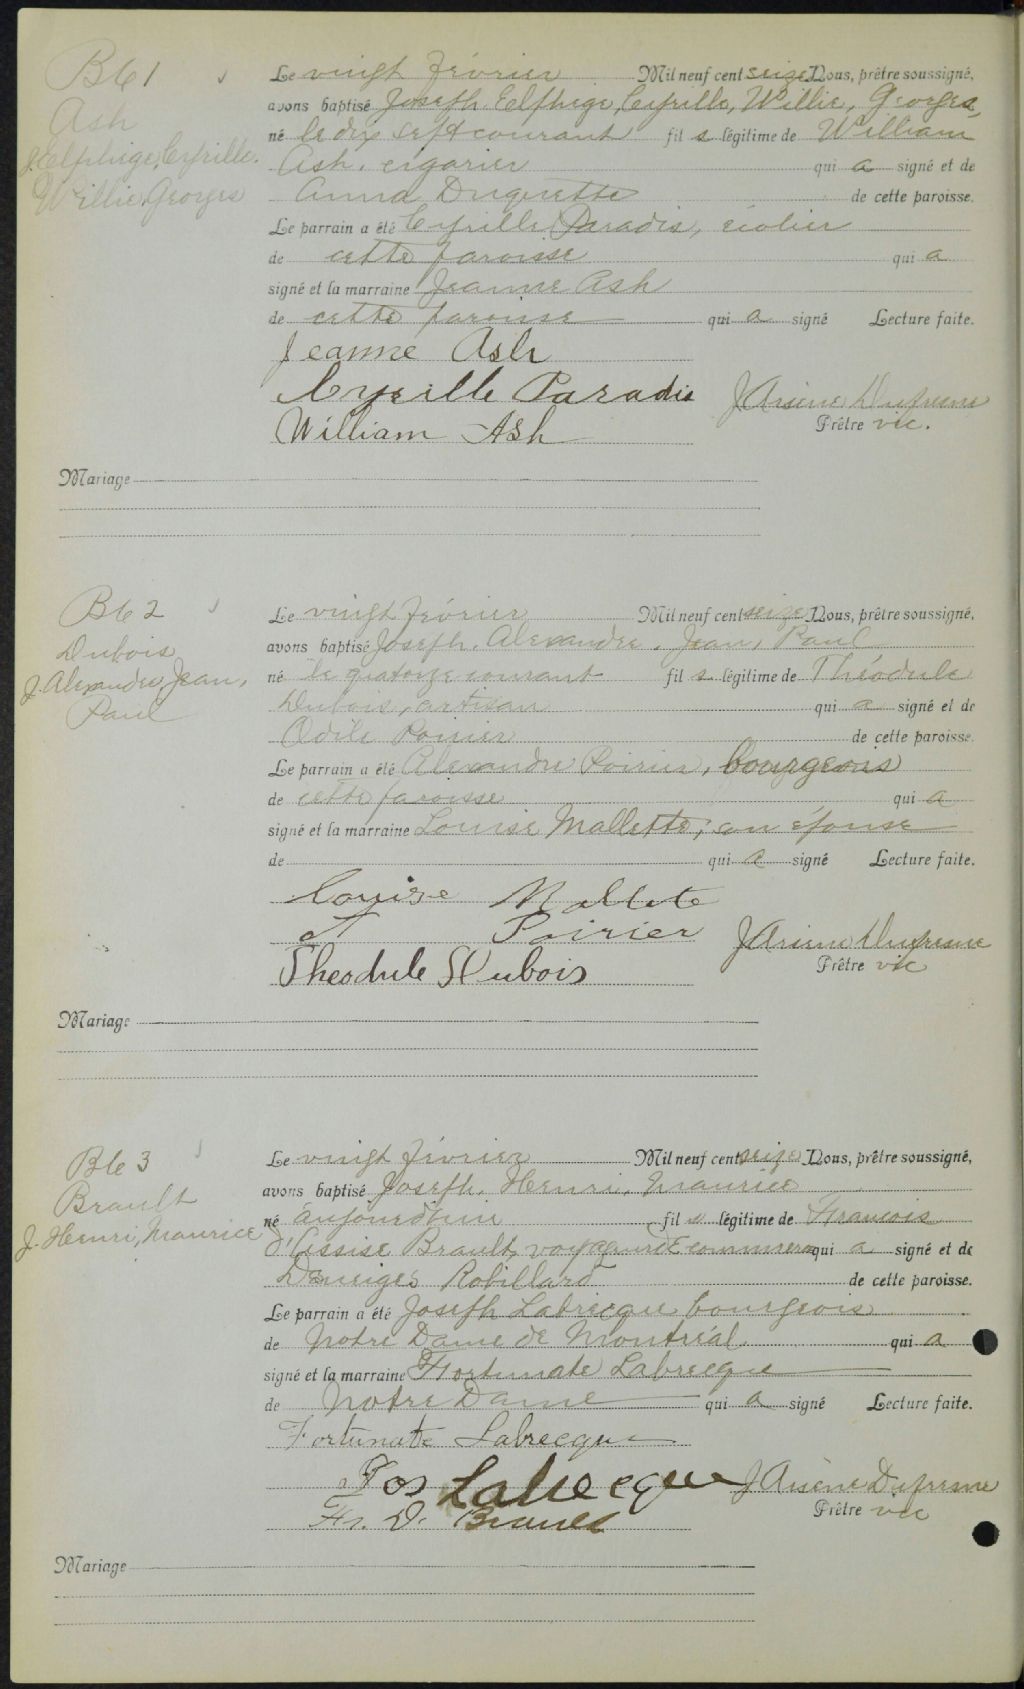 B61
Ash
J. Elphège, Cyrille.
Willie, Georges
Le vingt février Mil neuf cent seize Nous, prêtre soussigné,
avons baptisé Joseph Elphège, Cyrille, Willie, Georges,
né le dix sept courant fil s légitime de William
Ash, cigarier qui a signé et de
Anna Duquette de cette paroisse.
Le parrain a été Cyrille Paradis, écolier
de cette paroisse qui a
signé et la marraine Jeanne Ash
de cette paroisse qui a signé Lecture faite.
Jeanne Ash
Cyrille Paradis J Arsène Dufresne
William Ash Prêtre vic.
Mariage
B62
Dubois
J. Alexandre, Jean,
Paul
Le vingt février Mil neuf cent seize Nous, prêtre soussigné,
avons baptisé Joseph, Alexandre, Jean, Paul
né le quatorze courant fil s légitime de Théodule
Dubois, artisan qui a signé et de
Odile Poirier de cette paroisse.
Le parrain a été Alexandre Poirier, bourgeois
de cette paroisse qui a
signé et la marraine Louise Mallette, son épouse
de qui a signé Lecture faite.
Louise Mallete
A Poirier J Arsène Dufresne
Theodule Dubois Prêtre vic
Mariage
B63
Brault
J. Henri, Maurice
Le vingt février Mil neuf cent seize Nous, prêtre soussigné,
avons baptisé Joseph, Henri, Maurice
né aujourd'hui fil s légitime de François
d'Assise Brault, voyageur de commerce qui a signé et de
Deneiges Robillard de cette paroisse.
Le parrain a été Joseph Labrecque bourgeois
de Notre Dame de Montréal qui a
signé et la marraine Fortunate Labrecque
de Notre Dame qui a signé Lecture faite.
Fortunate Labrecque
Jos Labrecque J Arsène Dufresne
Fr. D. Brault Prêtre vic
Mariage